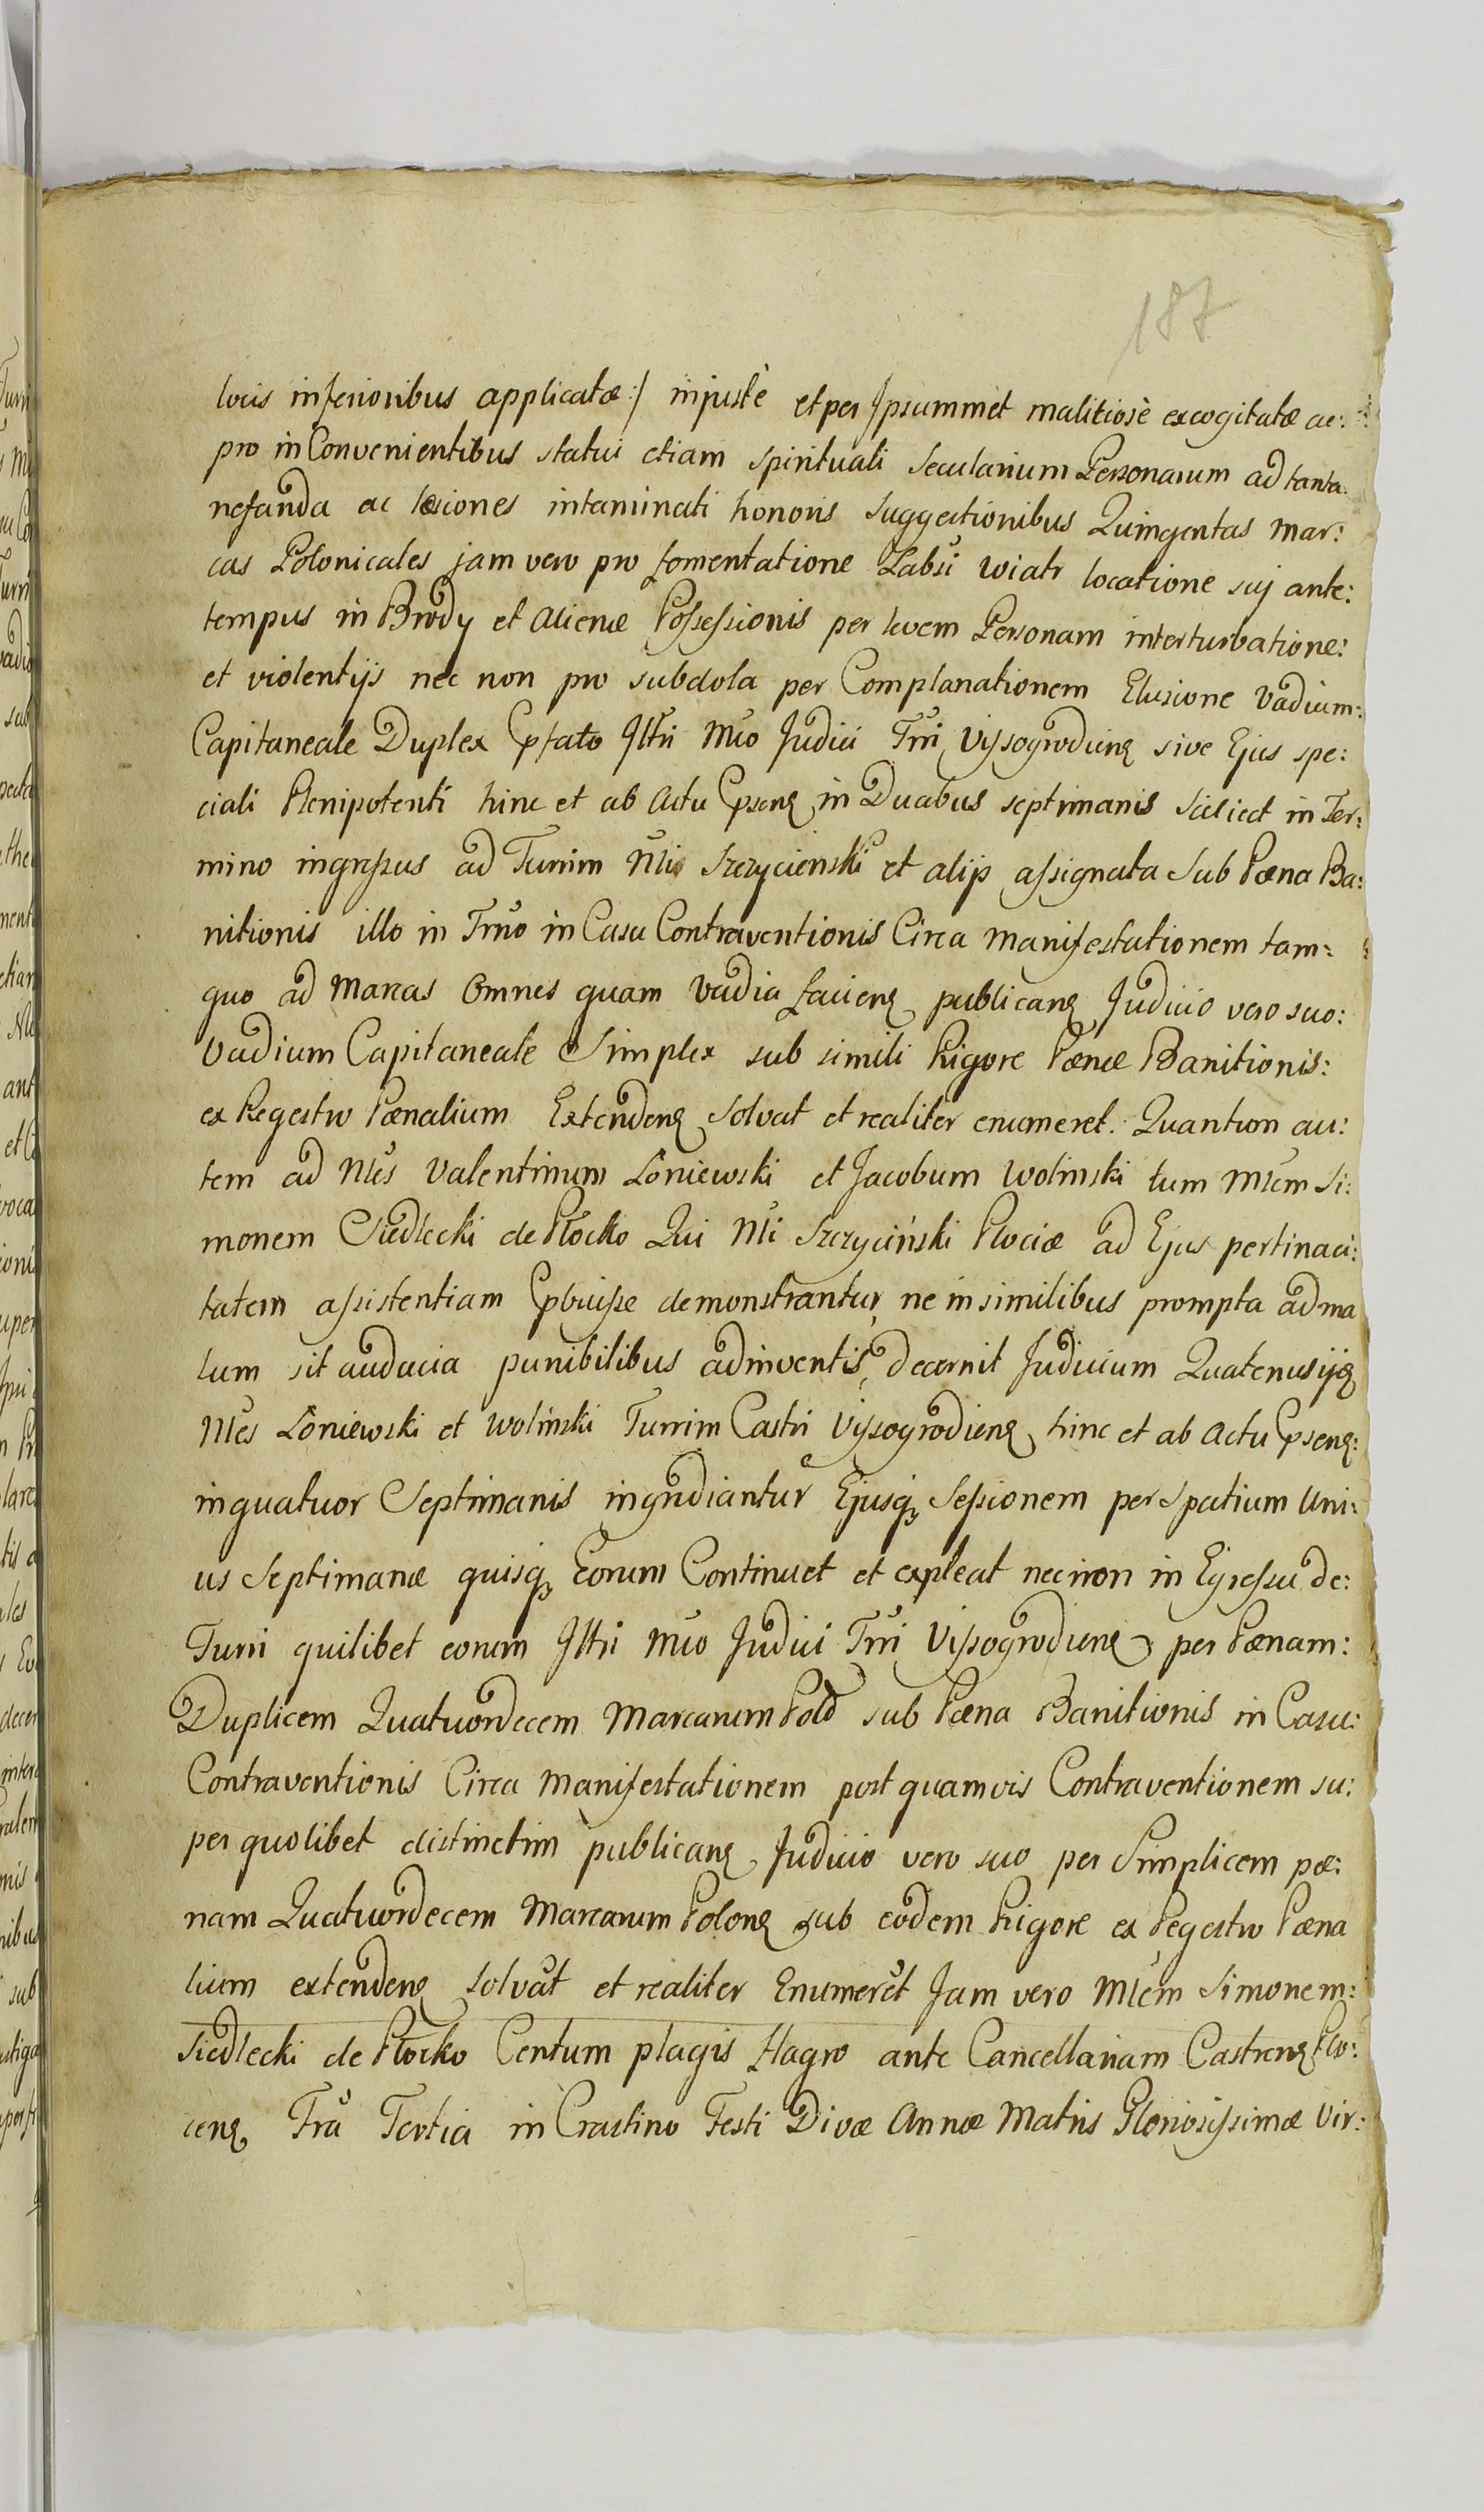 187
locis inferioribus applicatæ :/ injustè et per Ipsummet malitiosè excogitatæ ac:
pro inConvenientibus statui etiam spirituali Secularium Personarum ad tanta:
nefanda ac læsiones intaminati honoris suggestionibus Quingentas mar:
cas Polonicales jam vero pro fomentatione Labŭ wiatr locatione suj ante:
tempus in Brody et alienæ Possessionis per levem Personam interturbatione:
et violentijs nec non pro subdola per Complanationem Elusione Vadium:
Capitaneale Duplex Pfato Illŭ Mŭo Judici Trŭi Vyssogrodieng sive Ejus spe:
ciali Plenipotenti hinc et ab Actu Pseng in Duabus septimanis scilicet in Ter:
mino ingressus ad Turrim Nlis Szczycienski et alijs assignata sub Pæna Ba:
nitionis illo in Trno in Casu Contraventionis Circa manifestationem tam:
quo ad marcas Omnes quam Vadia facieng publicang Judicio vero suo:
Vadium Capitaneale Simplex sub simili Rigore Pænæ Banitionis:
ex Regestro Pænalium Extendeng solvat et realiter enumeret. Quantum au:
tem ad Nles Valentinum Łoniewski et Jacobum Wolinski tum Mlem Si:
monem Siedlecki de Płocko Qui Nli Szczyciński Plociæ ad Ejus pertinaci:
tatem assistentiam Pbuisse demonstrantur, ne in similibus prompta ad ma
lum sit audacia punibilibus adinventis, decernit Judicium Quatenus ijd
Nles Łoniewski et Wolinski Turrim Castri Vyssogrodieng hinc et ab Actu Pseng:
in quatuor Septimanis ingrediantur Ejusq Sessionem per Spatium Uni:
us Septimanæ quisq Eorum Continuet et expleat necnon in Egressu de:
Turri quilibet eorum Illŭ Mŭo Judici Trŭi Vissogrodieng per Pænam:
Duplicem Quatuordecem Marcarum Pold sub Pæna Banitionis in Casu:
Contraventionis Circa manifestationem post quamvis Contraventionem su:
per quolibet distinctim publicang Judicio vero suo per Simplicem pæ:
nam Quatuordecem Marcarum Polong sub eodem Rigore ex Regestro Pæna
lium extendeng solvat et realiter Enumeret Jam vero Mlem Simonem:
Siedlecki de Płocko Centum plagis Flagro ante Cancellariam Castreng Plo:
ceng Fra Tertia in Crastino Festi Divæ Annæ Matris Gloriosissimæ Vir: